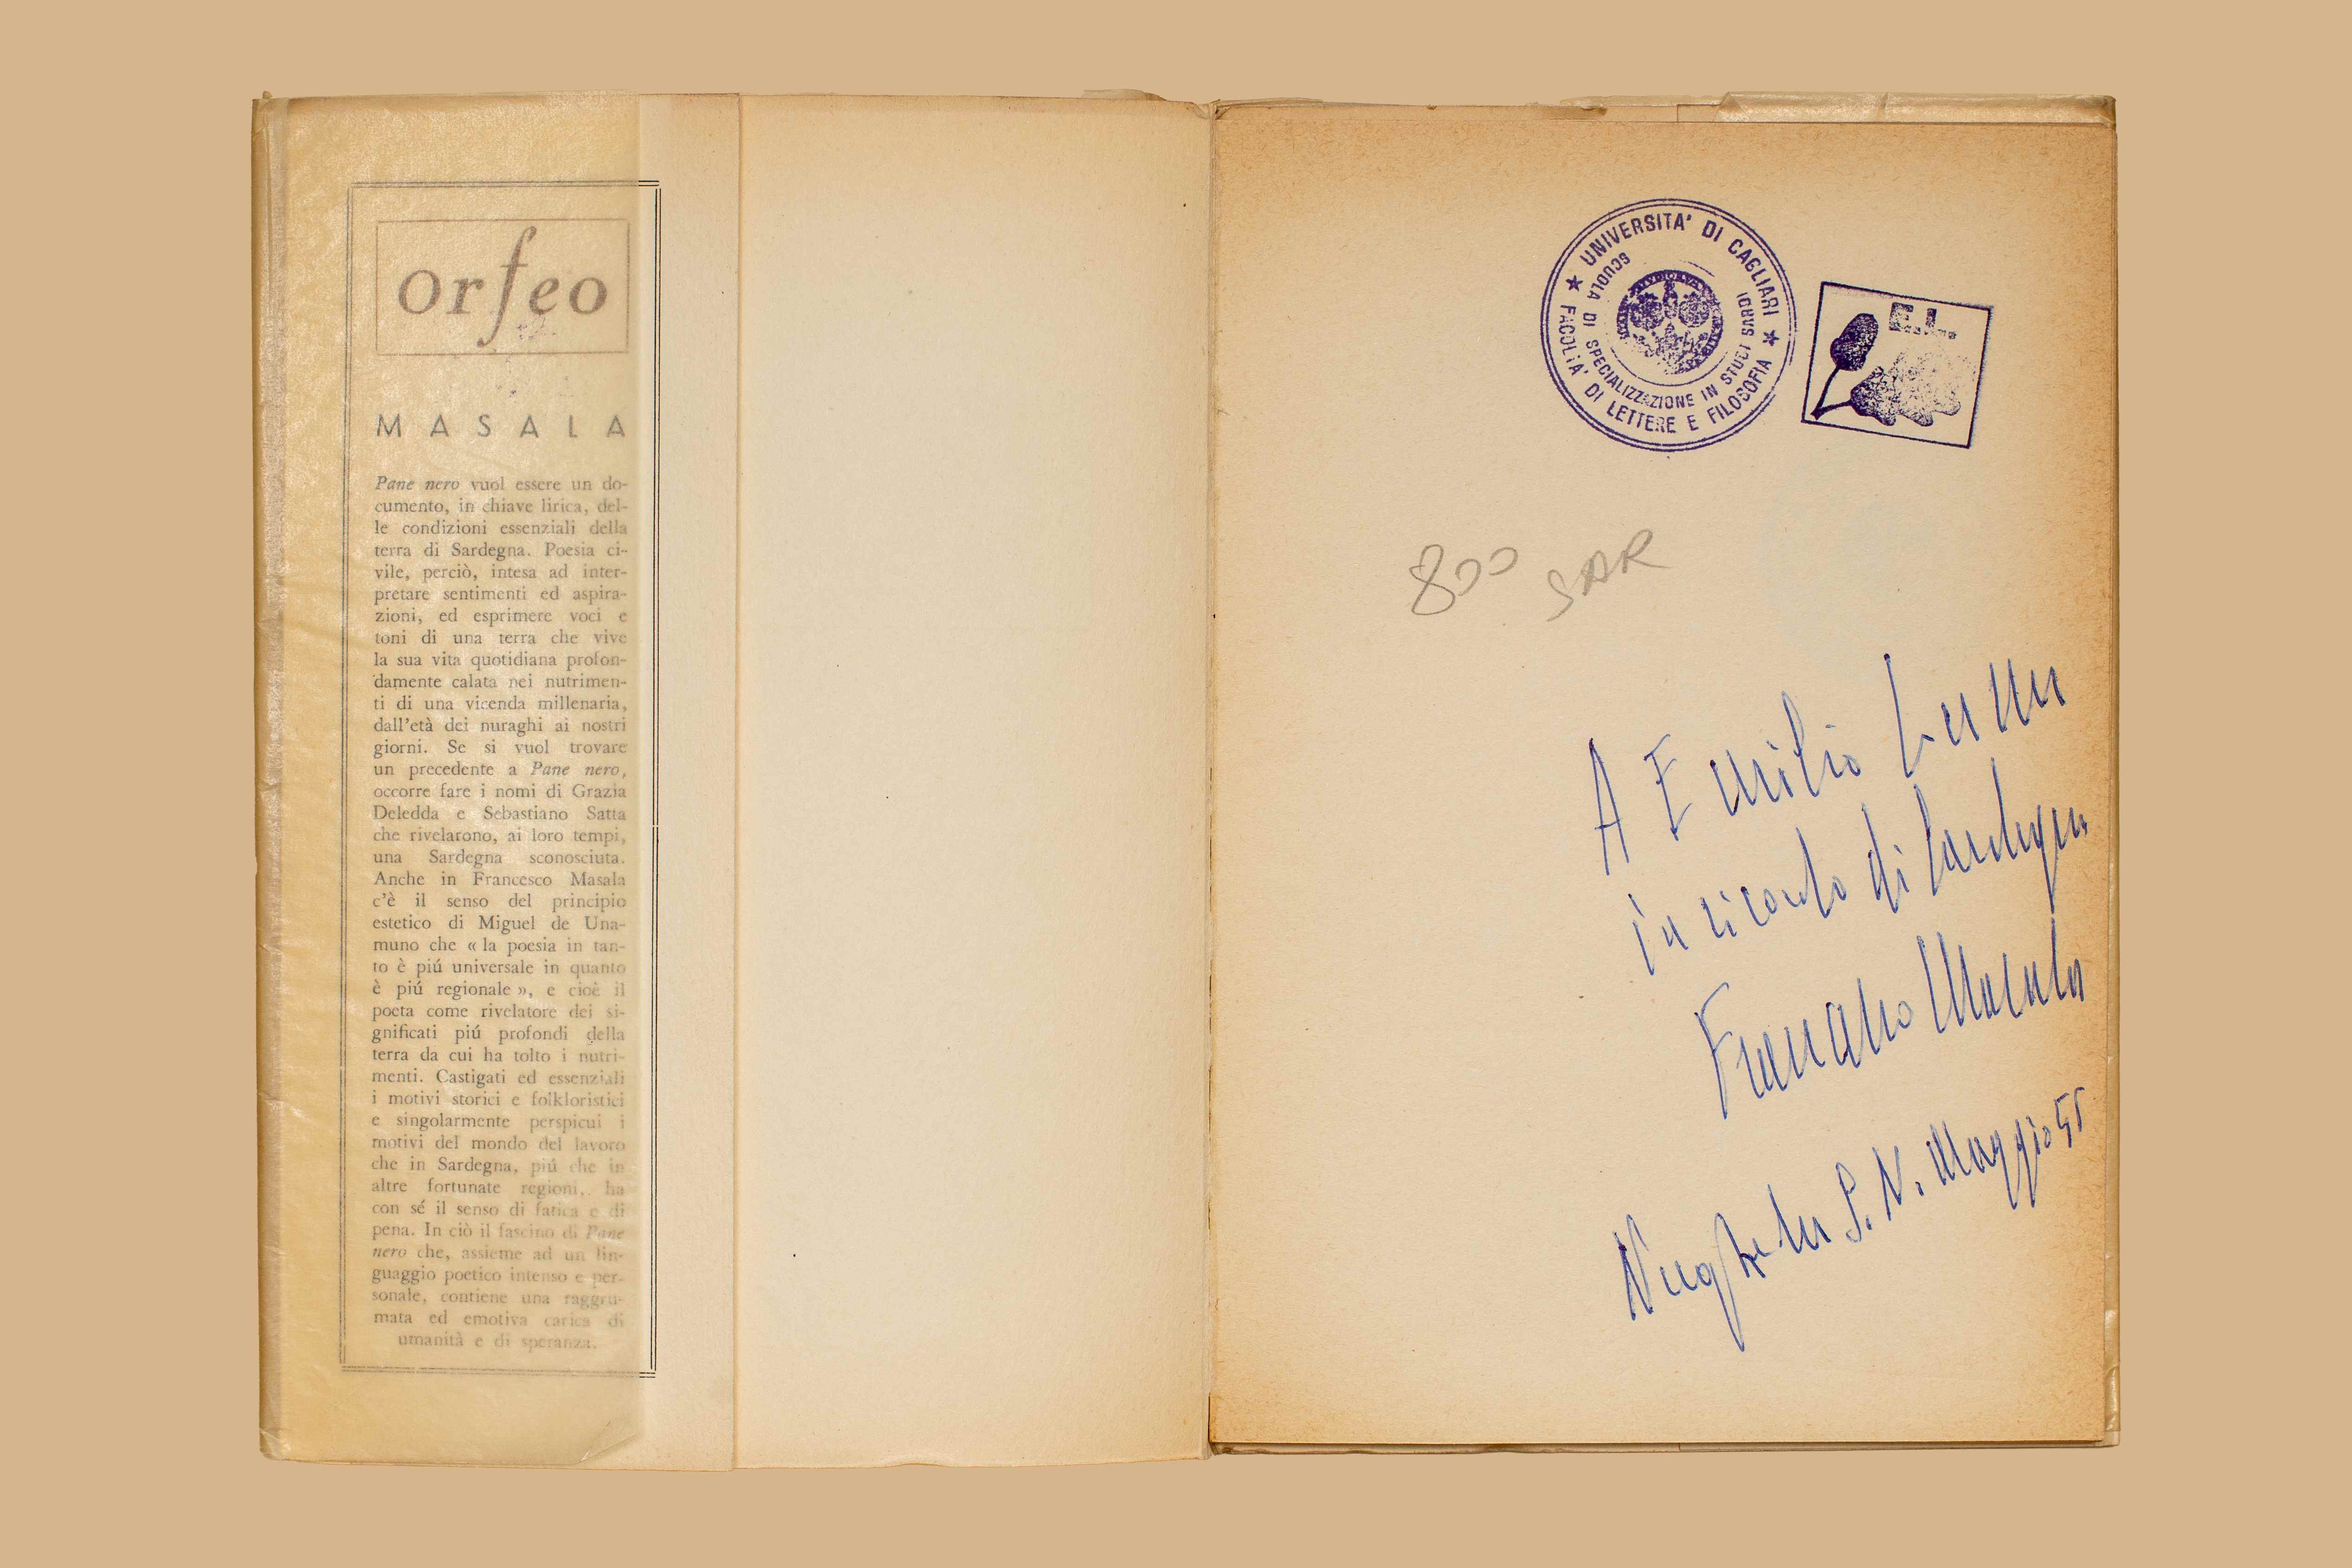 orfeo
MASALA
Pane nero vuol essere un do-
cumento, in chiave lirica, del-
le condizioni essenziali della
terra di Sardegna. Poesia ci-
vile, perciò, intesa ad inter-
pretare sentimenti ed aspira-
zioni, ed esprimere voci e
toni di una terra che vive
la sua vita quotidiana profon-
damente calata nei nutrimen-
ti di una vicenda millenaria,
dall'età dei nuraghi ai nostri
giorni. Se si vuol trovare
un precedente a Pane nero,
occorre fare i nomi di Grazia
Deledda e Sebastiano Satta
che rivelarono, ai loro tempi,
una Sardegna sconosciuta.
Anche in Francesco Masala
c'è il senso del principio
estetico di Miguel de Una-
muno che « la poesia in tan-
to è piú universale in quanto
è piú regionale », e cioè il
poeta come rivelatore dei si-
gnificati piú profondi della
terra da cui ha tolto i nutri-
menti. Castigati ed essenziali
i motivi storici e folkloristici
e singolarmente perspicui i
motivi del mondo del lavoro
che in Sardegna, piú che in
altre fortunate regioni, ha
con sé il senso di fatica e di
pena. In ciò il fascino di Pane
nero che, assieme ad un lin-
guaggio poetico intenso e per-
sonale, contiene una raggru-
mata ed emotiva carica di
umanità e di speranza.
UNIVERSITA' DI CAGLIARI
FACOLTA' DI LETTERE E FILOSOFIA
SCUOLA DI SPECIALIZZAZIONE IN STUDI SARDI
E.L.
800 SAR
A Emilio Lussu
in ricordo di Sardegna
Francesco Masala
Nughedu S. N. Maggio 55